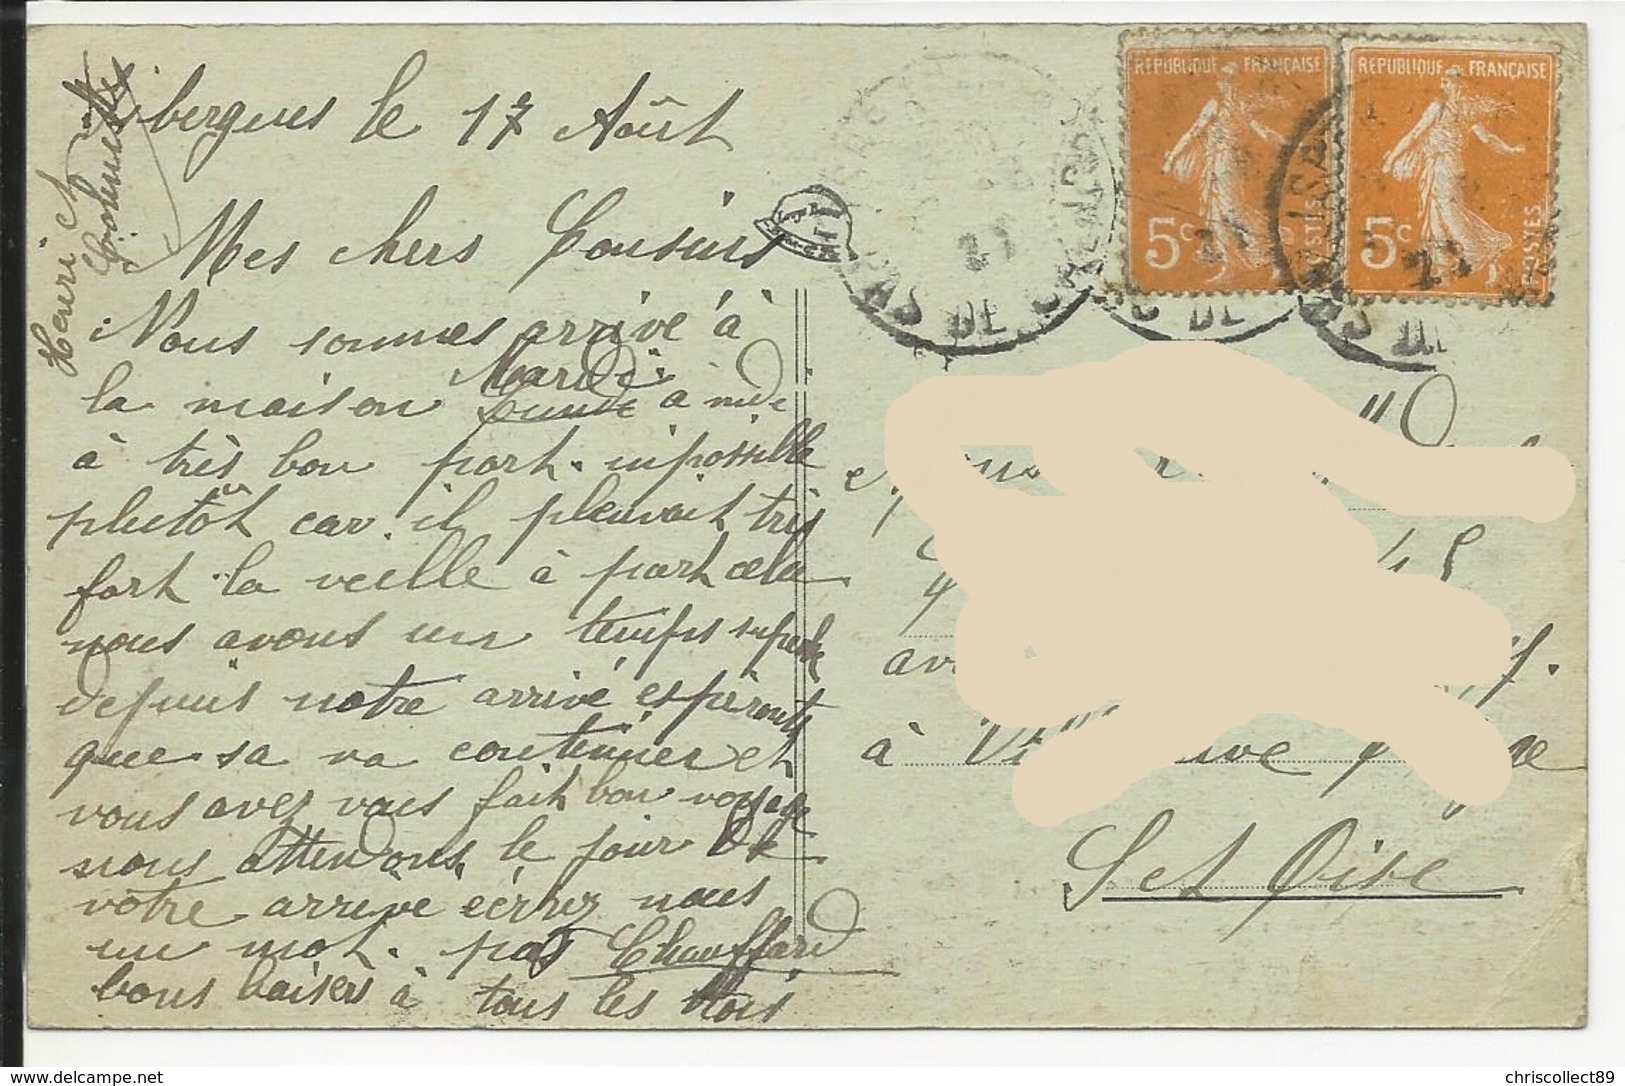 Isbergues le 17 Août
Mes chers Cousins
Nous sommes arrivé à
la maison Mardi à midi
à très bon port. impossible
plutôt car il pleuvait très
fort la veille à part cela
nous avons un temps superbe
depuis notre arrivé espérons
que sa va continuer et
vous avez vous fait bon voyage
nous attendons le jour de
votre arrivé écrivez nous
un mot. pas Chauffard
bons baisers à tous les trois
Henri et
REPUBLIQUE FRANÇAISE
5c
POSTES
REPUBLIQUE FRANÇAISE
5c
POSTES
PAS DE CALAIS
à
S et Oise
chriscollect89